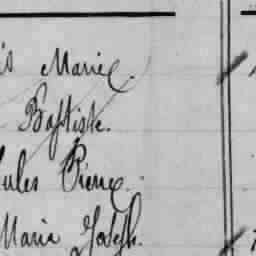 is Marie.
Baptiste.
Jules Pierre.
Marie Joseph.